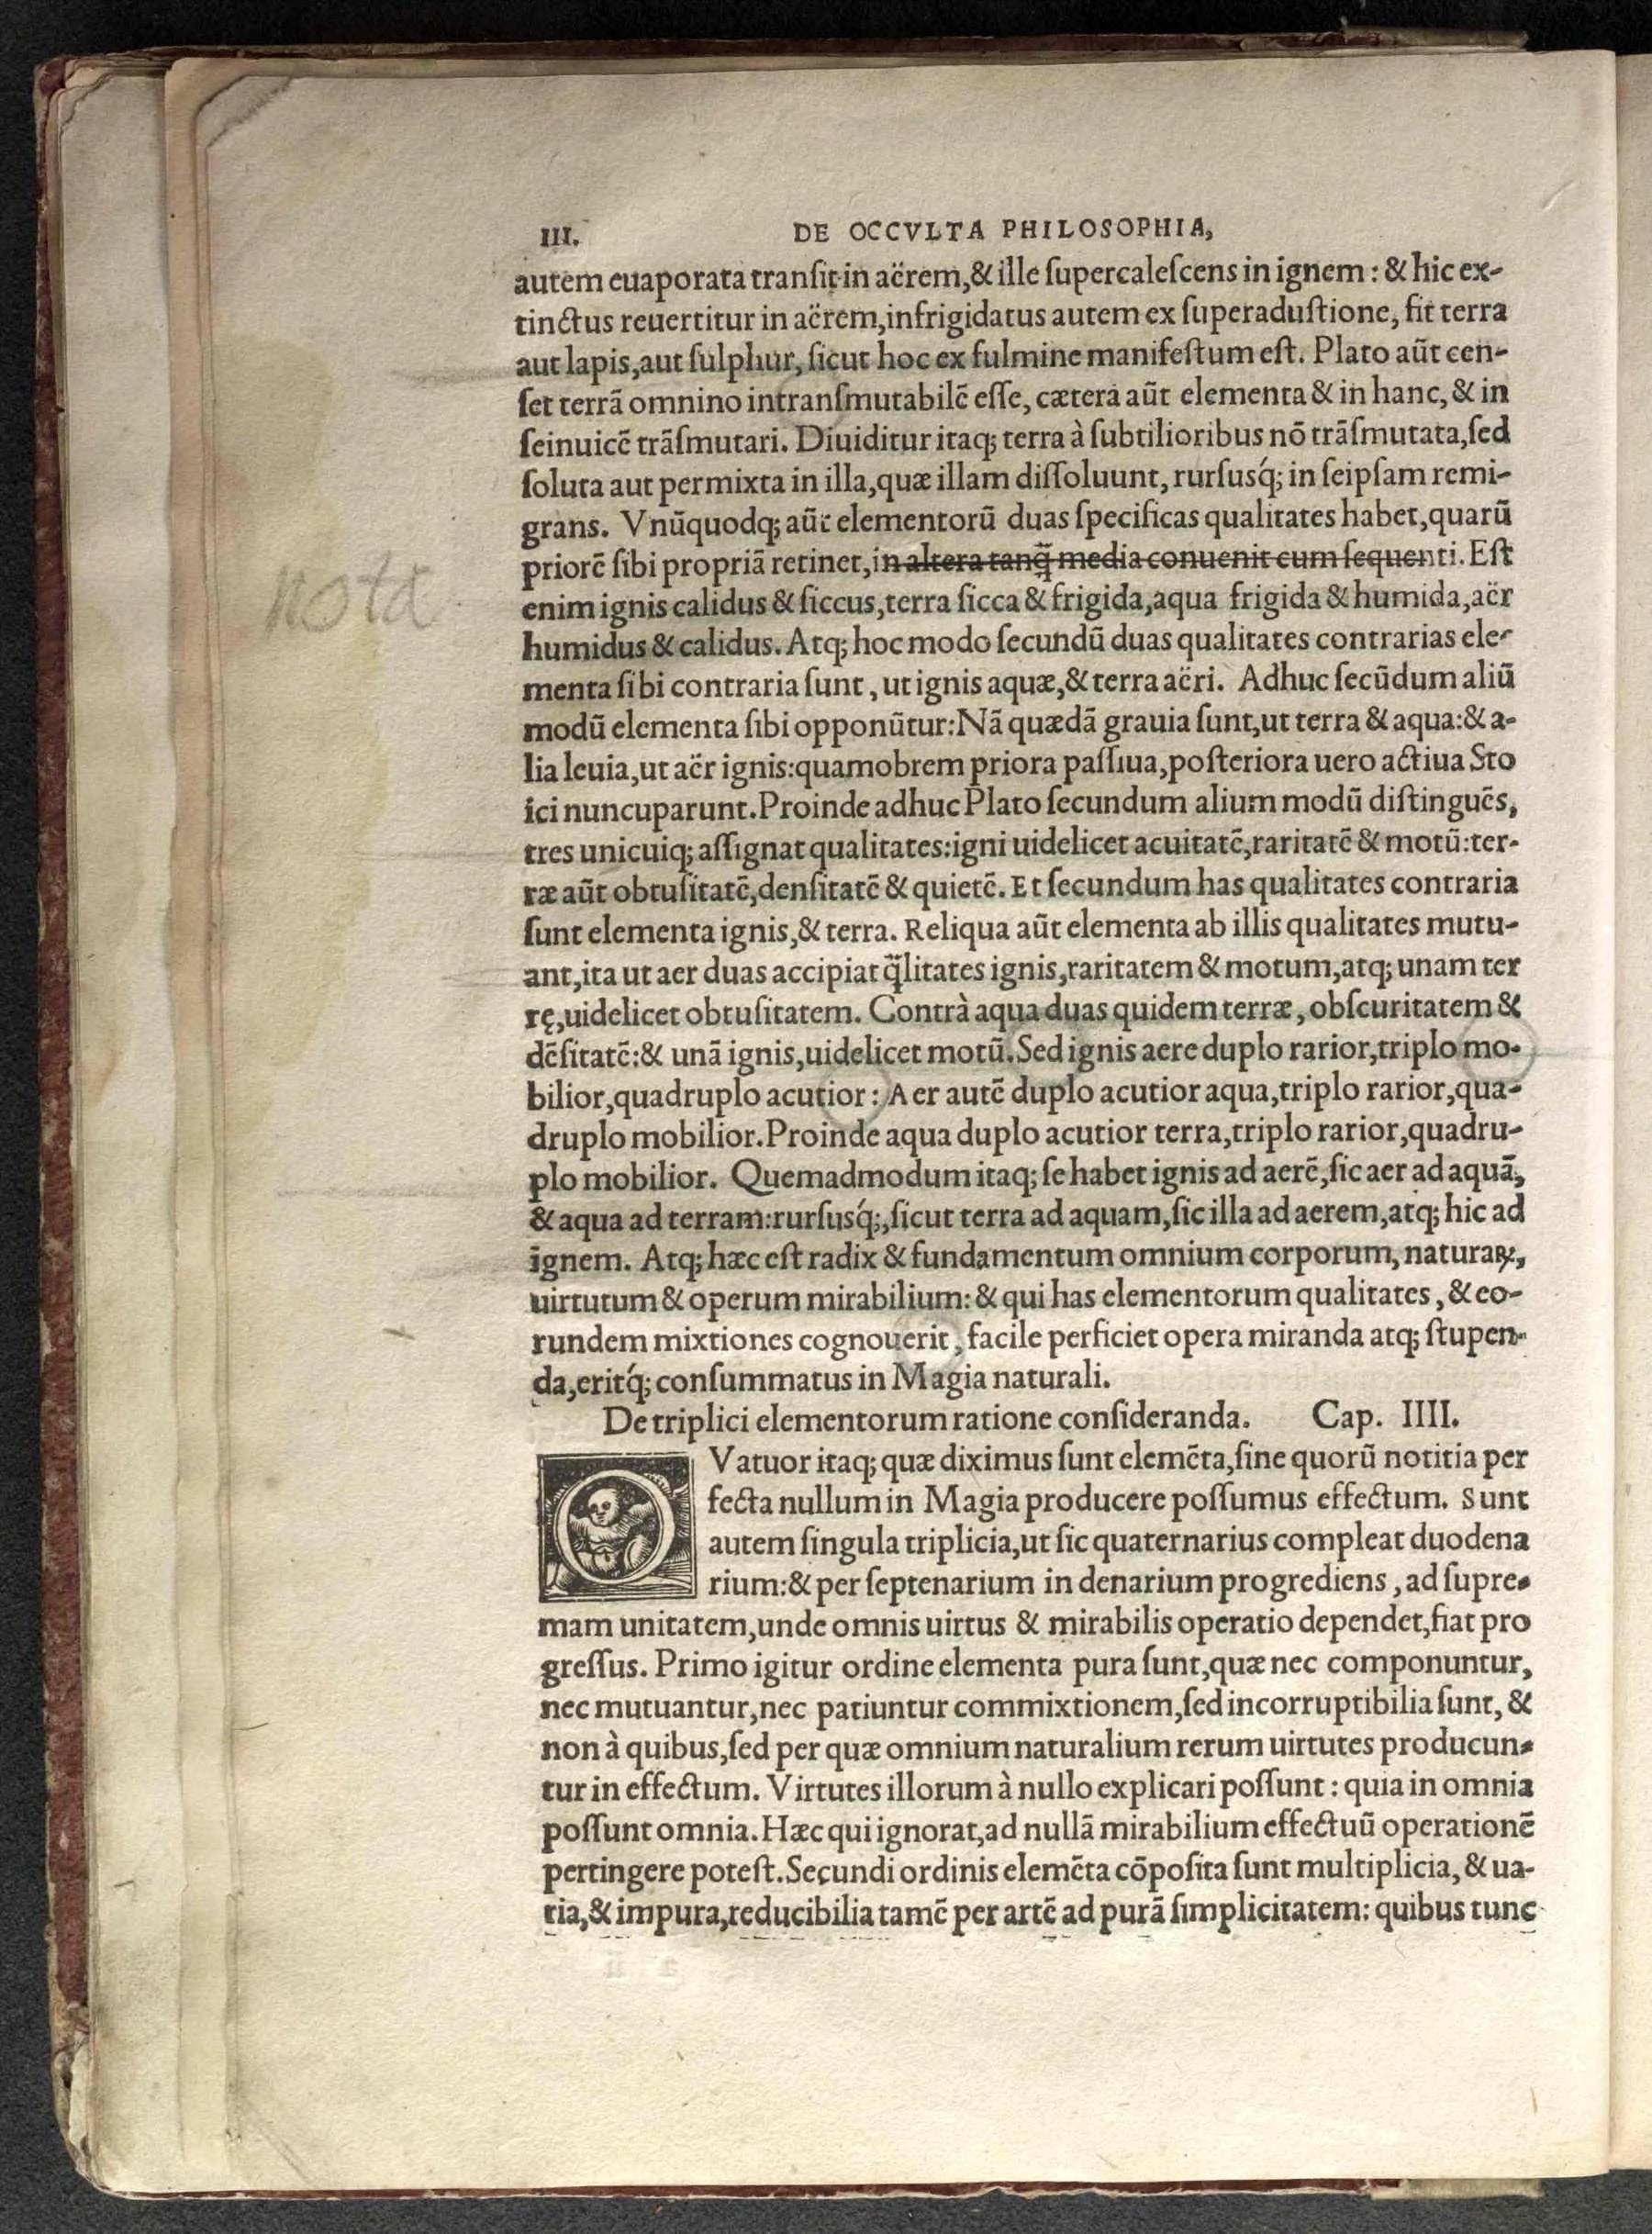 III. DE OCCVLTA PHILOSOPHIA,
autem euaporata transit in aërem,& ille supercalescens in ignem : & hic ex-
tinctus reuertitur in aërem,infrigidatus autem ex superadustione, fit terra
aut lapis,aut sulphur, sicut hoc ex fulmine manifestum est. Plato aūt cen-
set terrā omnino intransmutabilē esse, cætera aūt elementa & in hanc, & in
seinuicē trāsmutari. Diuiditur itaq; terra à subtilioribus nō trāsmutata,sed
soluta aut permixta in illa,quæ illam dissoluunt, rursusq́; in seipsam remi-
grans. Vnūquodq; aūt elementorū duas specificas qualitates habet,quarū
nota
priorē sibi propriā retinet,in altera tanq̄ media conuenit cum sequenti. Est
enim ignis calidus & siccus,terra sicca & frigida,aqua frigida & humida,aër
humidus & calidus. Atq; hoc modo secundū duas qualitates contrarias ele-
menta sibi contraria sunt, ut ignis aquæ,& terra aëri. Adhuc secūdum aliū
modū elementa sibi opponūtur:Nā quædā grauia sunt,ut terra & aqua:& a-
lia leuia,ut aër ignis:quamobrem priora passiua,posteriora uero actiua Sto
ici nuncuparunt.Proinde adhuc Plato secundum alium modū distinguēs,
tres unicuiq; assignat qualitates:igni uidelicet acuitatē,raritatē & motū:ter-
ræ aūt obtusitatē,densitatē & quietē. Et secundum has qualitates contraria
sunt elementa ignis,& terra. Reliqua aūt elementa ab illis qualitates mutu-
ant,ita ut aer duas accipiat q̄litates ignis,raritatem & motum,atq; unam ter
rę,uidelicet obtusitatem. Contrà aqua duas quidem terræ, obscuritatem &
dēsitatē:& unā ignis,uidelicet motū. Sed ignis aere duplo rarior,triplo mo-
bilior,quadruplo acutior : Aer autē duplo acutior aqua,triplo rarior,qua-
druplo mobilior.Proinde aqua duplo acutior terra,triplo rarior,quadru-
plo mobilior. Quemadmodum itaq; se habet ignis ad aerē,sic aer ad aquā,
& aqua ad terram:rursusq́;,sicut terra ad aquam,sic illa ad aerem,atq; hic ad
ignem. Atq; hæc est radix & fundamentum omnium corporum, naturaꝝ,
uirtutum & operum mirabilium: & qui has elementorum qualitates, & eo-
rundem mixtiones cognouerit, facile perficiet opera miranda atq; stupen-
da,eritq́; consummatus in Magia naturali.
De triplici elementorum ratione consideranda. Cap. IIII.
QVatuor itaq; quæ diximus sunt elemēta,sine quorū notitia per
fecta nullum in Magia producere possumus effectum. Sunt
autem singula triplicia,ut sic quaternarius compleat duodena
rium:& per septenarium in denarium progrediens, ad supre-
mam unitatem,unde omnis uirtus & mirabilis operatio dependet,fiat pro
gressus. Primo igitur ordine elementa pura sunt,quæ nec componuntur,
nec mutuantur,nec patiuntur commixtionem,sed incorruptibilia sunt, &
non à quibus,sed per quæ omnium naturalium rerum uirtutes producun-
tur in effectum. Virtutes illorum à nullo explicari possunt : quia in omnia
possunt omnia. Hæc qui ignorat,ad nullā mirabilium effectuū operationē
pertingere potest.Secundi ordinis elemēta cōposita sunt multiplicia, & ua-
ria,& impura,reducibilia tamē per artē ad purā simplicitatem: quibus tunc